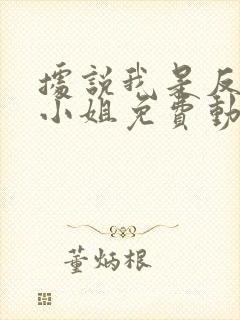 據說我是反
小姐免費動
董炳根